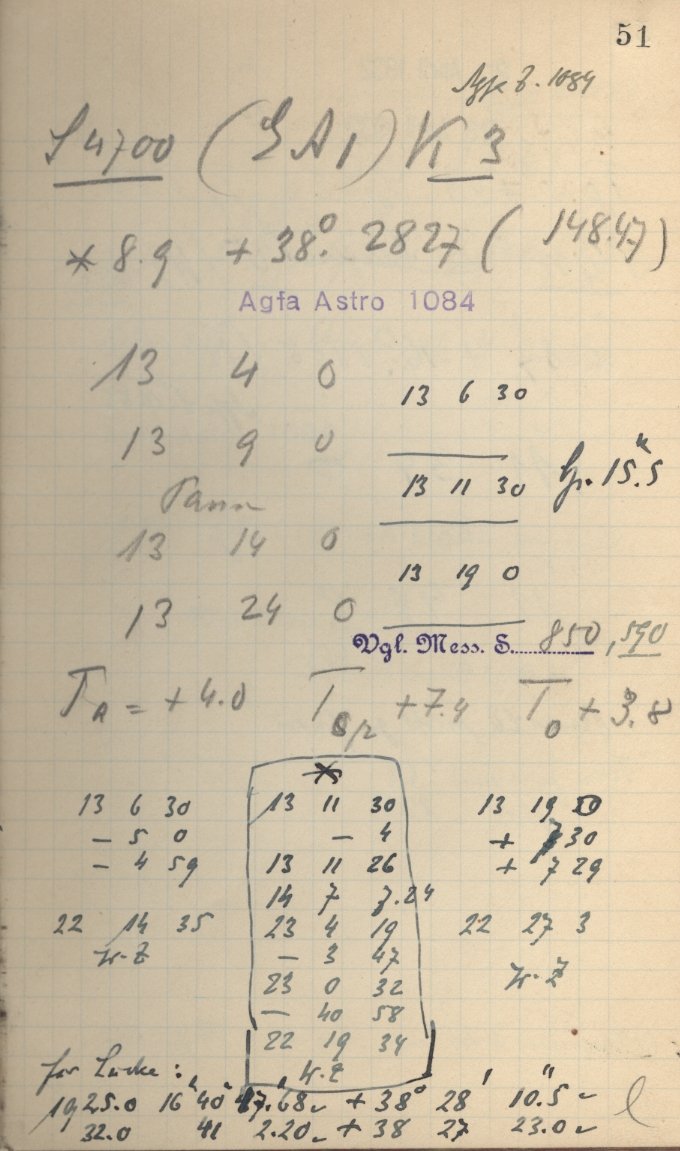 51
Agfa 1084
S 4700 (EA1) K 3
* 8.9 + 38°. 2827 ( 148.47 )
Agfa Astro 1084
13 4 0
13 6 30
13 9 0
13 11 30 15.5
13 14 0
13 19 0
13 24 0
Vgl. Mess. S. 850, 590
T_A = + 4.0 T_Sp + 7.4 T_O + 3.8
*
13 6 30 13 11 30 13 19 0
– 5 0 – 4 + 7 30
– 4 59 13 11 26 + 7 29
14 7 7.24
22 14 35 23 4 19 22 27 3
– 3 47
23 0 32
– 40 58
22 19 34
for Lücke :
1925.0 16 40 47.68 + 38° 28' 10.5"
32.0 41 2.20 + 38 27 23.0